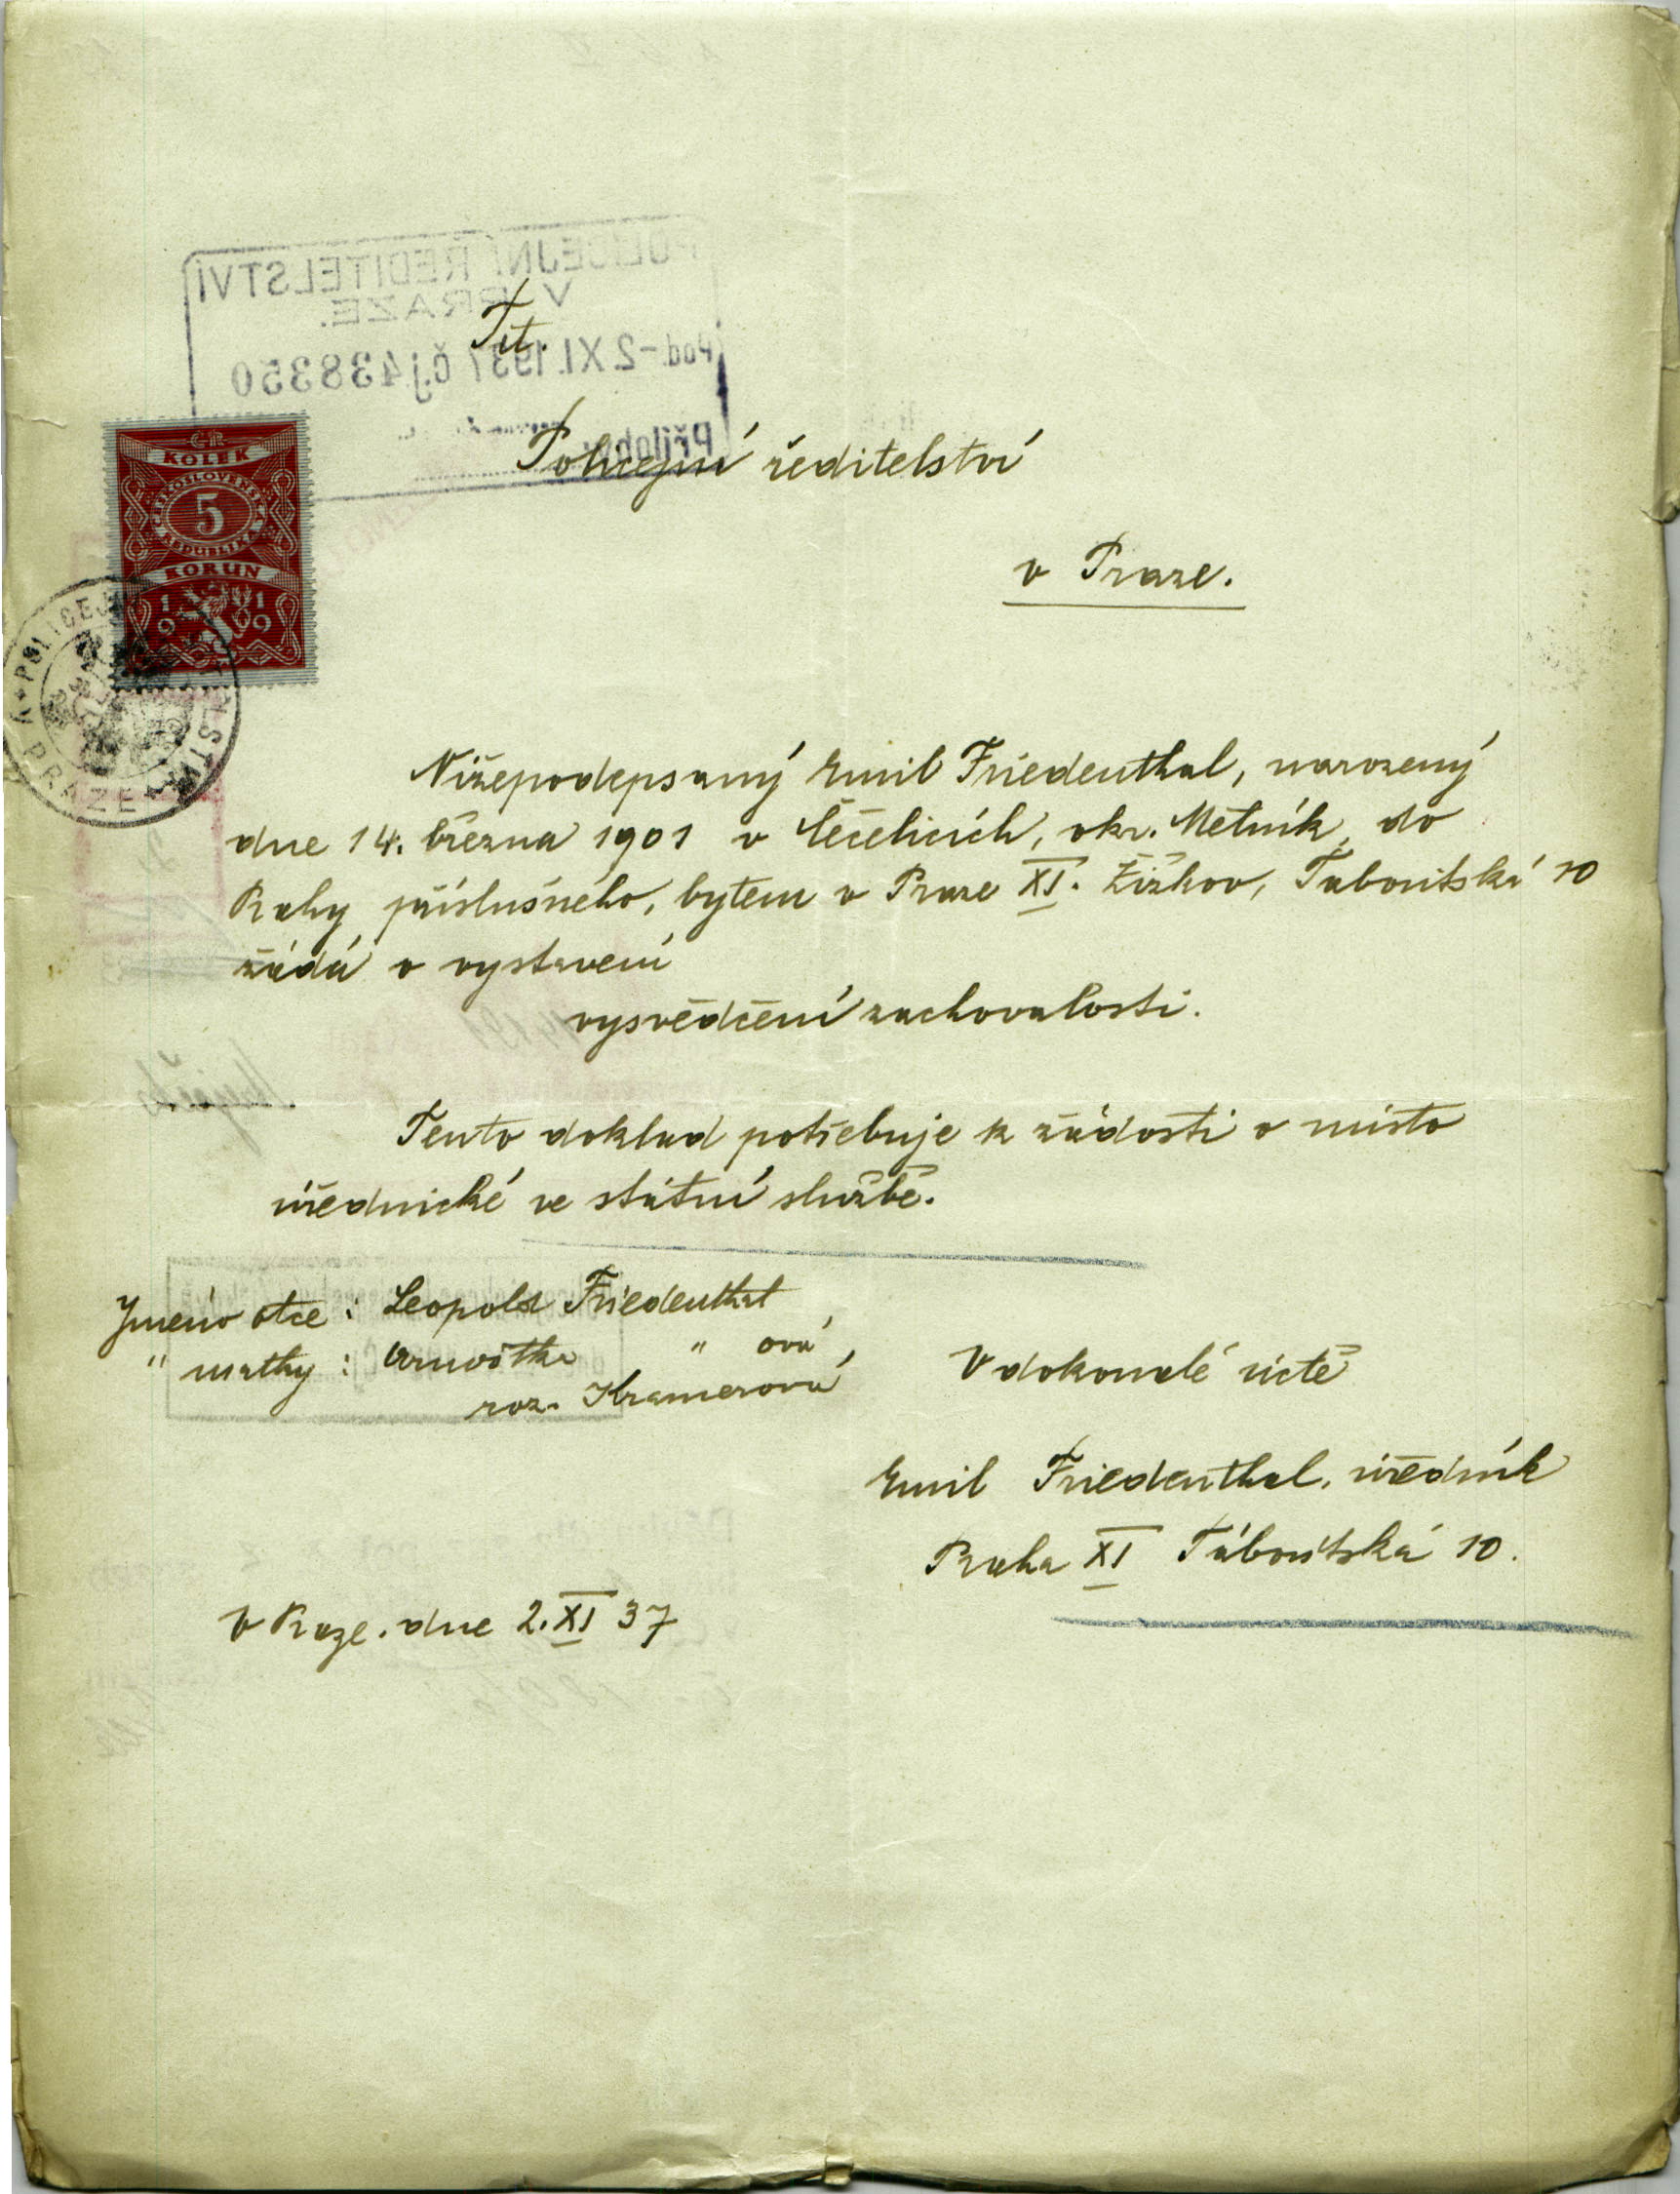 Tit.
Policejní ředitelství
v Praze.
KOLEK
ČESKOSLOVENSKÁ
5
REPUBLIKA
KORUN
1919
POLICEJNÍ ŘEDITELSTVÍ
V PRAZE.
Pod. -2.XI.1937 Čj 438350
Přílohy
Nížepodepsaný Emil Friedenthal, narozený
dne 14. března 1901 v Čečelicích, okr. Mělník, do
Prahy příslušného, bytem v Praze XI. Žižkov, Táboritská 10
žádá o vystavení
vysvědčení zachovalosti.
Tento doklad potřebuje k žádosti o místo
úřednické ve státní službě.
Jméno otce : Leopold Friedenthal
" matky : " ová,
roz. Kramerová
V dokonalé úctě
Emil Friedenthal, úředník
Praha XI Táboritská 10.
V Praze. dne 2. XI 37